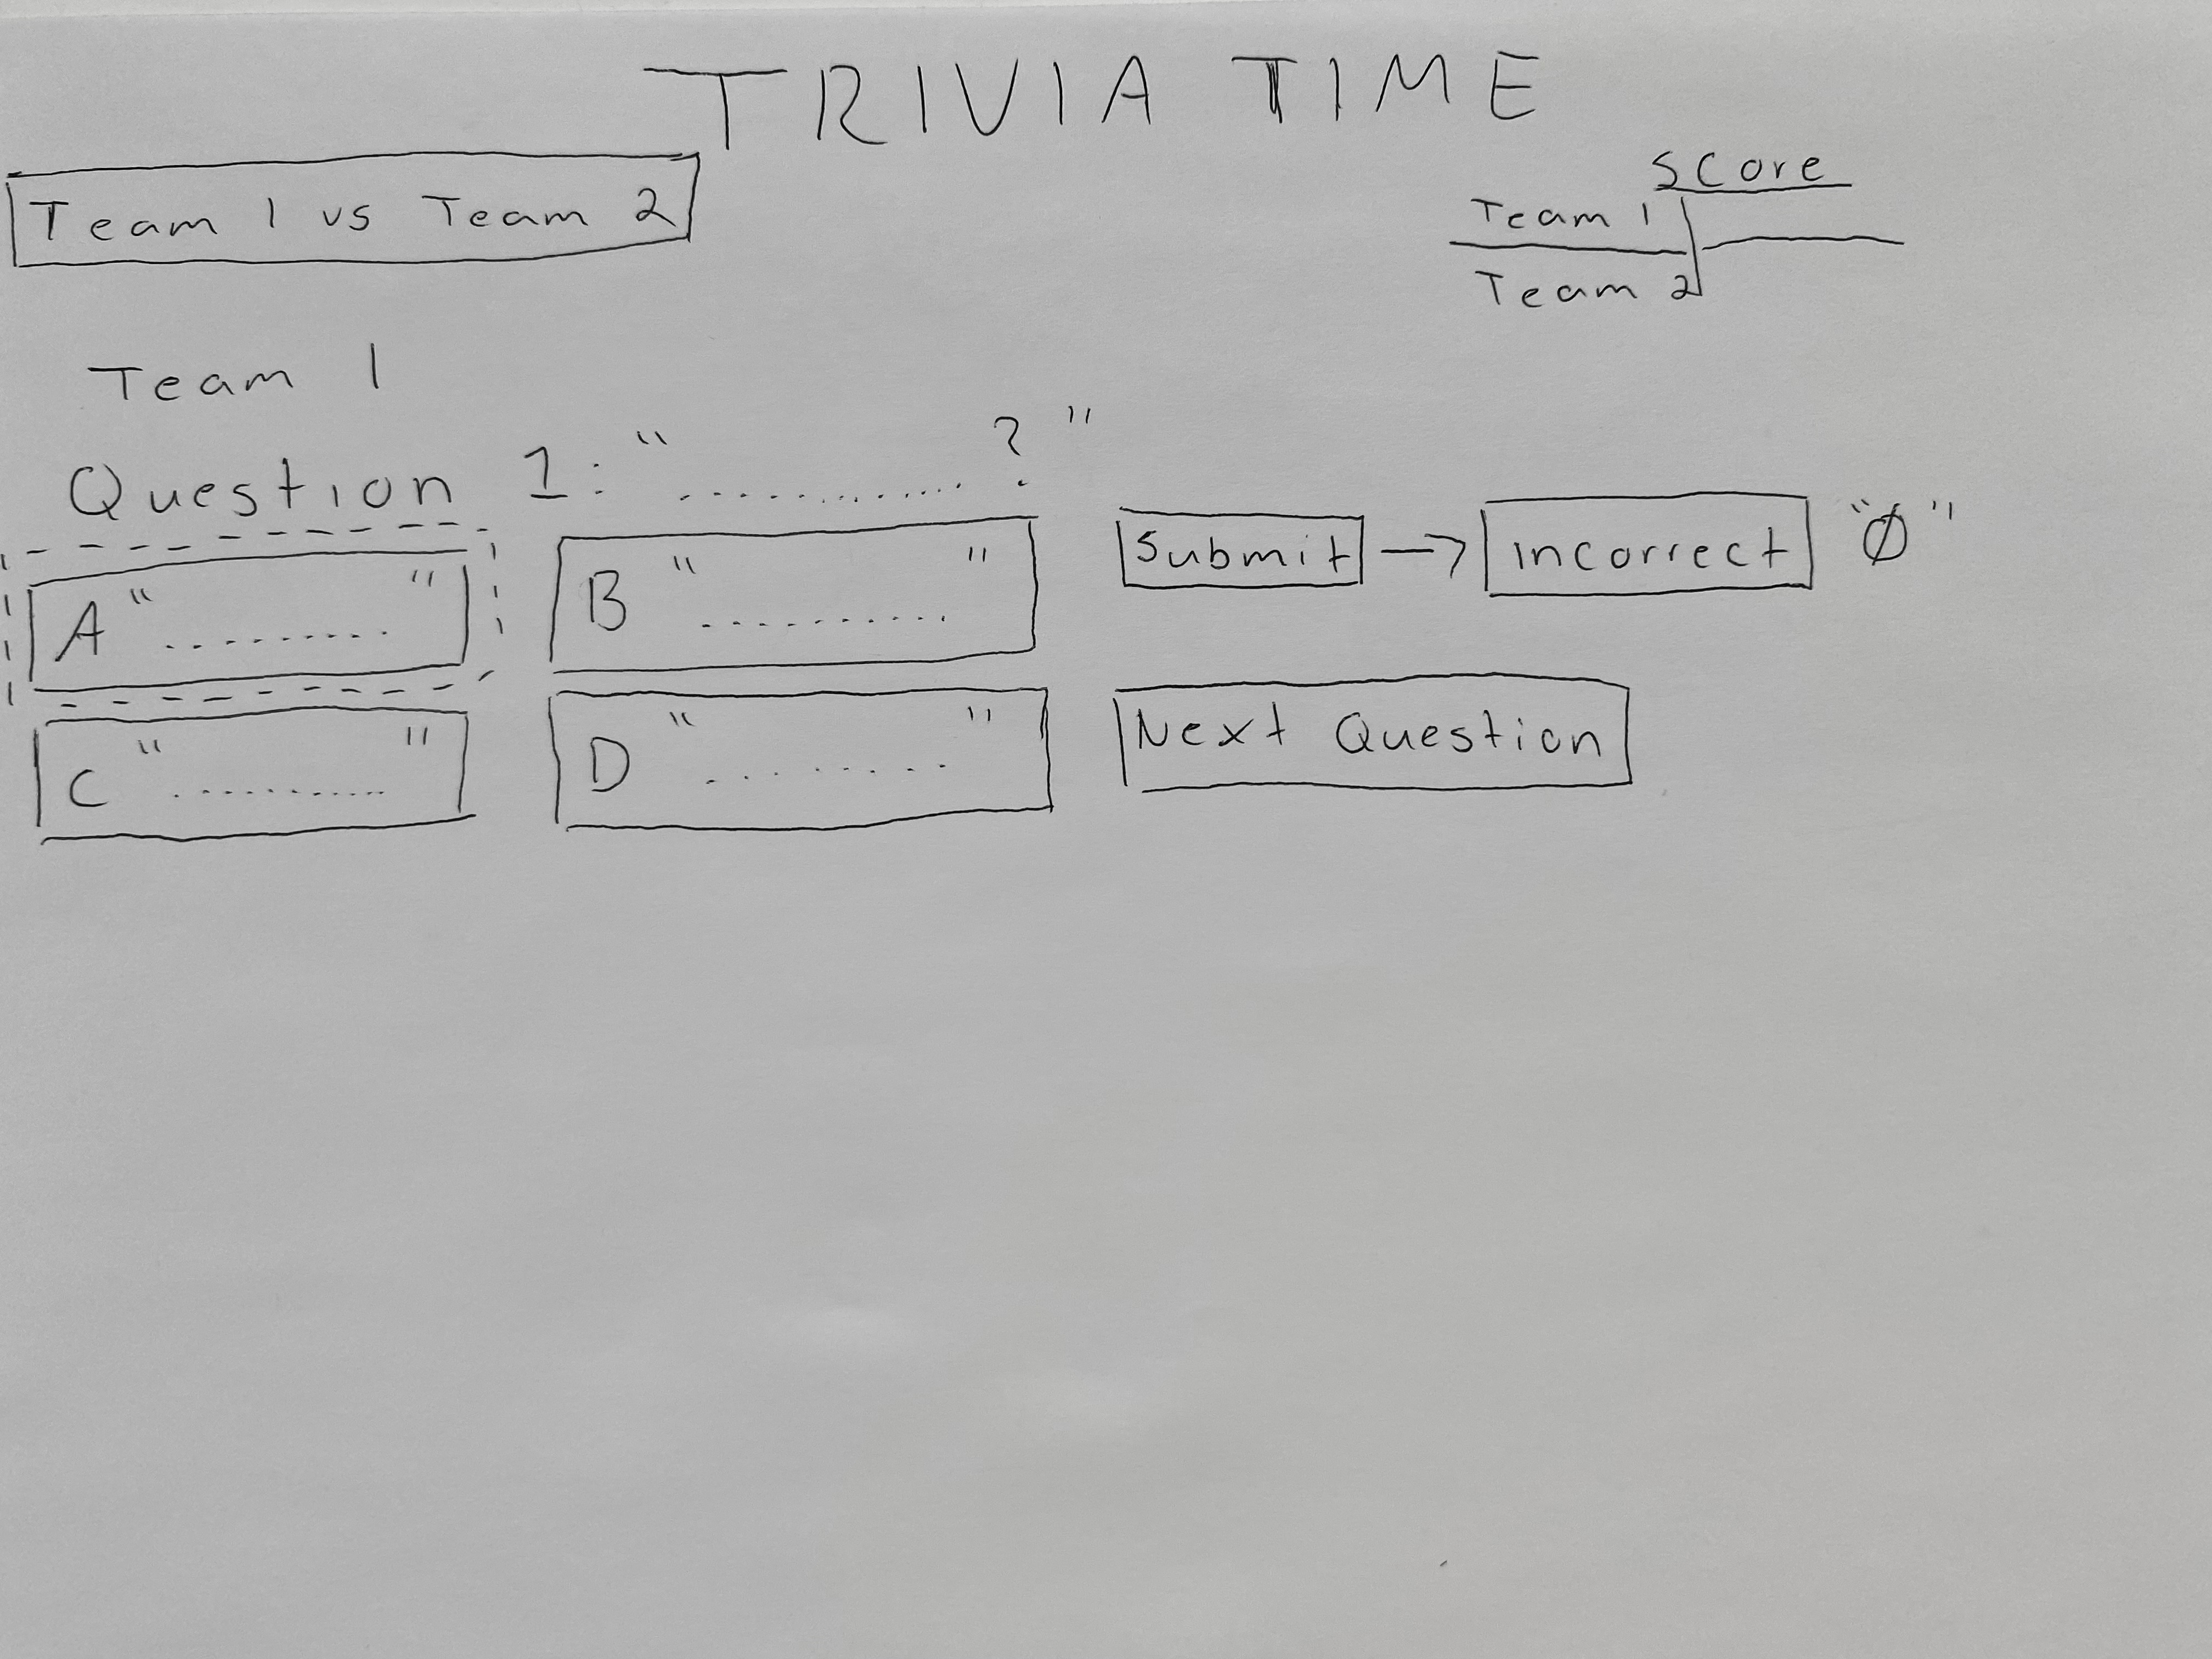 TRIVIA TIME
Team 1 vs Team 2
Score
Team 1
Team 2
Team 1
Question 1: "............?"
A "........."
B ".........."
Submit → incorrect "Ø"
C ".........."
D "........"
Next Question